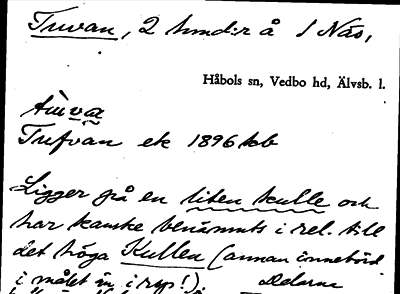 Tuvan, 2 hmd:r å S Näs,
Håbols sn, Vedbo hd, Älvsb. l.
Tufvan ek 1896 kb
Ligger på en liten kulle och
har kanske benämnts i rel. till
det höga Kullen (annan innebörd
i målet än i rsp!). Delarne